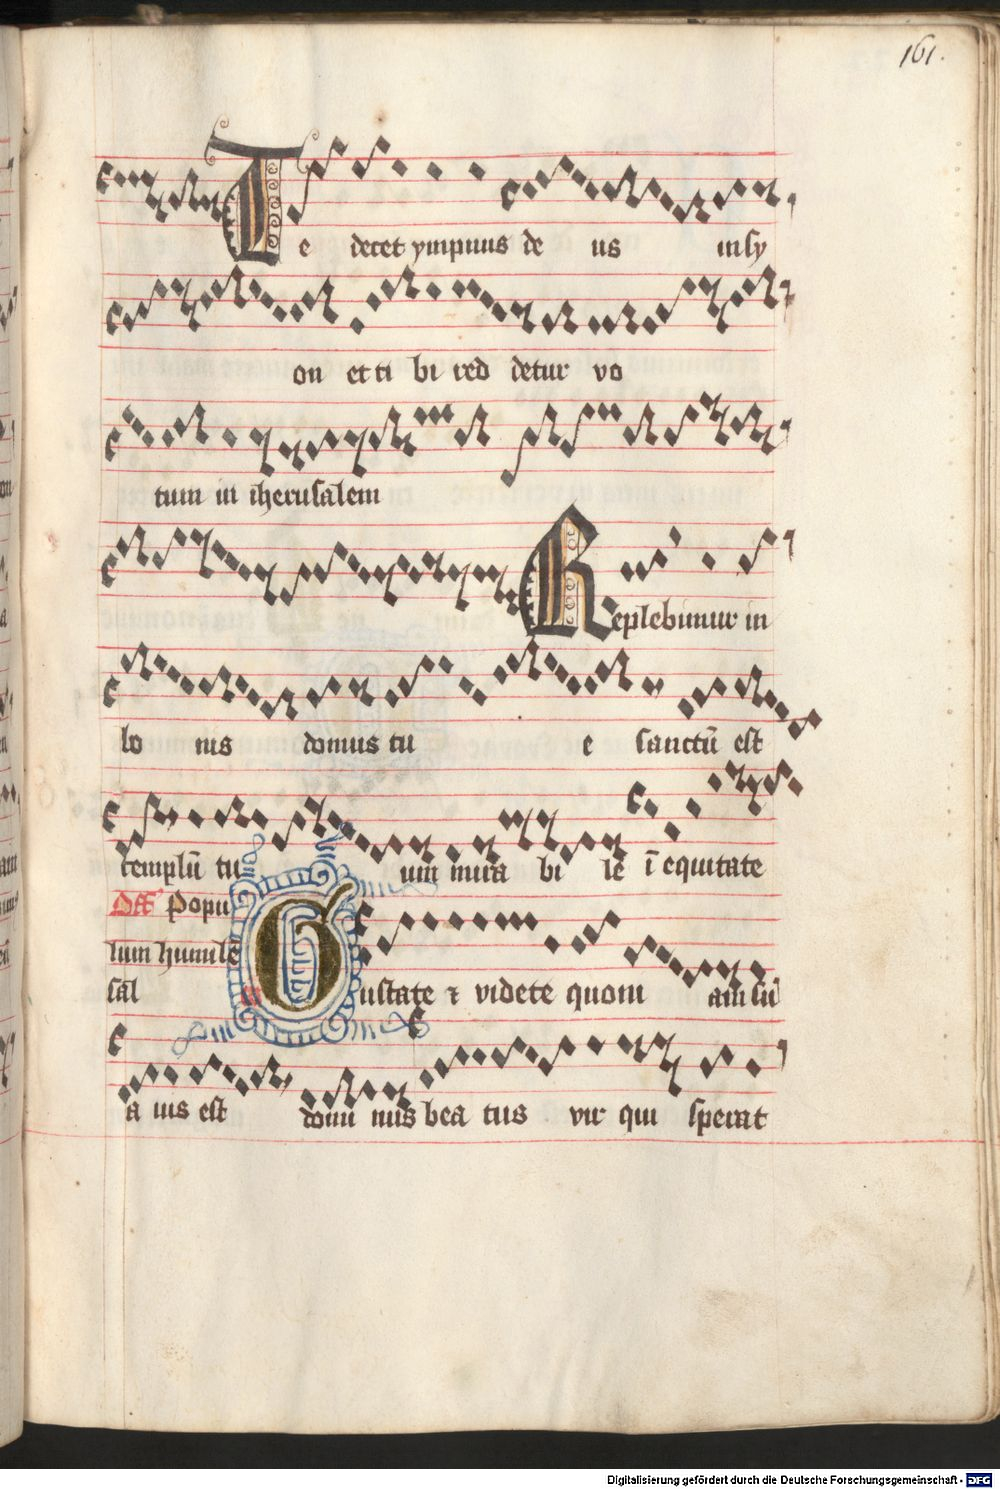 161.
Te decet ympnus de us in sy
on et ti bi red detur vo
tum in iherusalem
Replebimur in
bo nis domus tu e sanctū est
templū tu um mira bi le ī equitate
Off Popu
lum humilē
sal Gustate ⁊ videte quoni am su
a uis est domi nus bea tus vir qui sperat
Digitalisierung gefördert durch die Deutsche Forschungsgemeinschaft - DFG